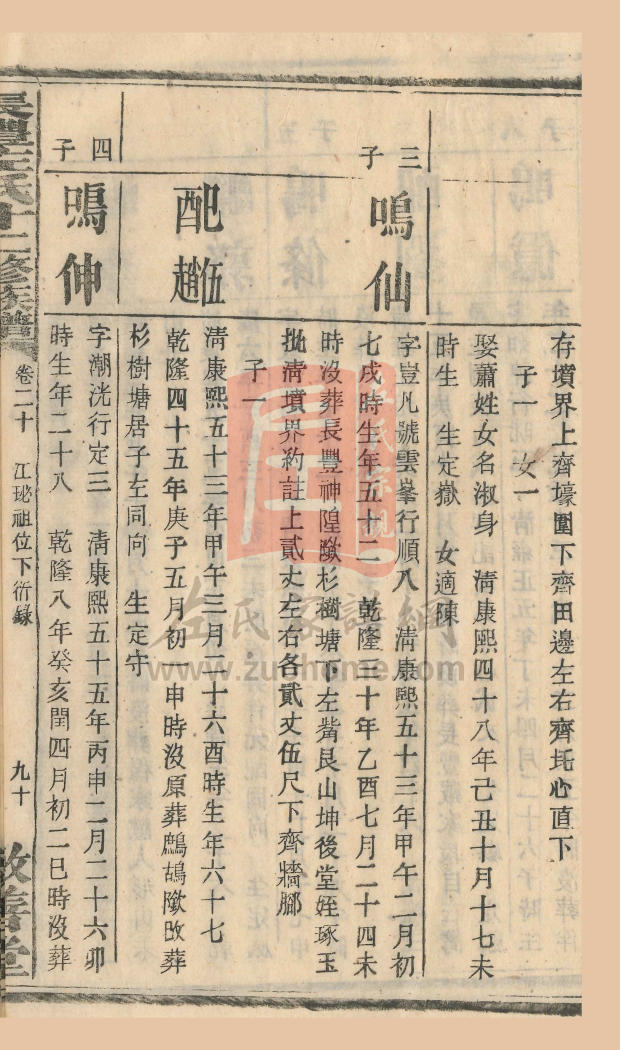 存墳界上齊壕圍下齊田邊左右齊圫心直下
子一 女一
娶蕭姓女名淑身 清康熙四十八年己丑十月十七未
時生 生定嶽 女適陳
三子
鳴仙
字豈凡號雲峯行順八 清康熙五十三年甲午二月初
七戌時生年五十二 乾隆三十年乙酉七月二十四未
時沒葬長豐神隍歟杉樹塘下左觜艮山坤後堂姪琢玉
批清墳界約註上貳丈左右各貳丈伍尺下齊牆腳
子一
配伍趙
清康熙五十三年甲午三月二十六酉時生年六十七
乾隆四十五年庚子五月初 申時沒原葬鷓鴣歟改葬
杉樹塘居子左同向 生定守
四子
鳴伸
字潮洸行定三 清康熙五十五年丙申二月二十六卯
時生年二十八 乾隆八年癸亥閏四月初二巳時沒葬
長豐左氏十二修族譜
卷二十 江珌祖位下衍錄
九十
敦善堂
左氏家譜網
www.zuohome.com